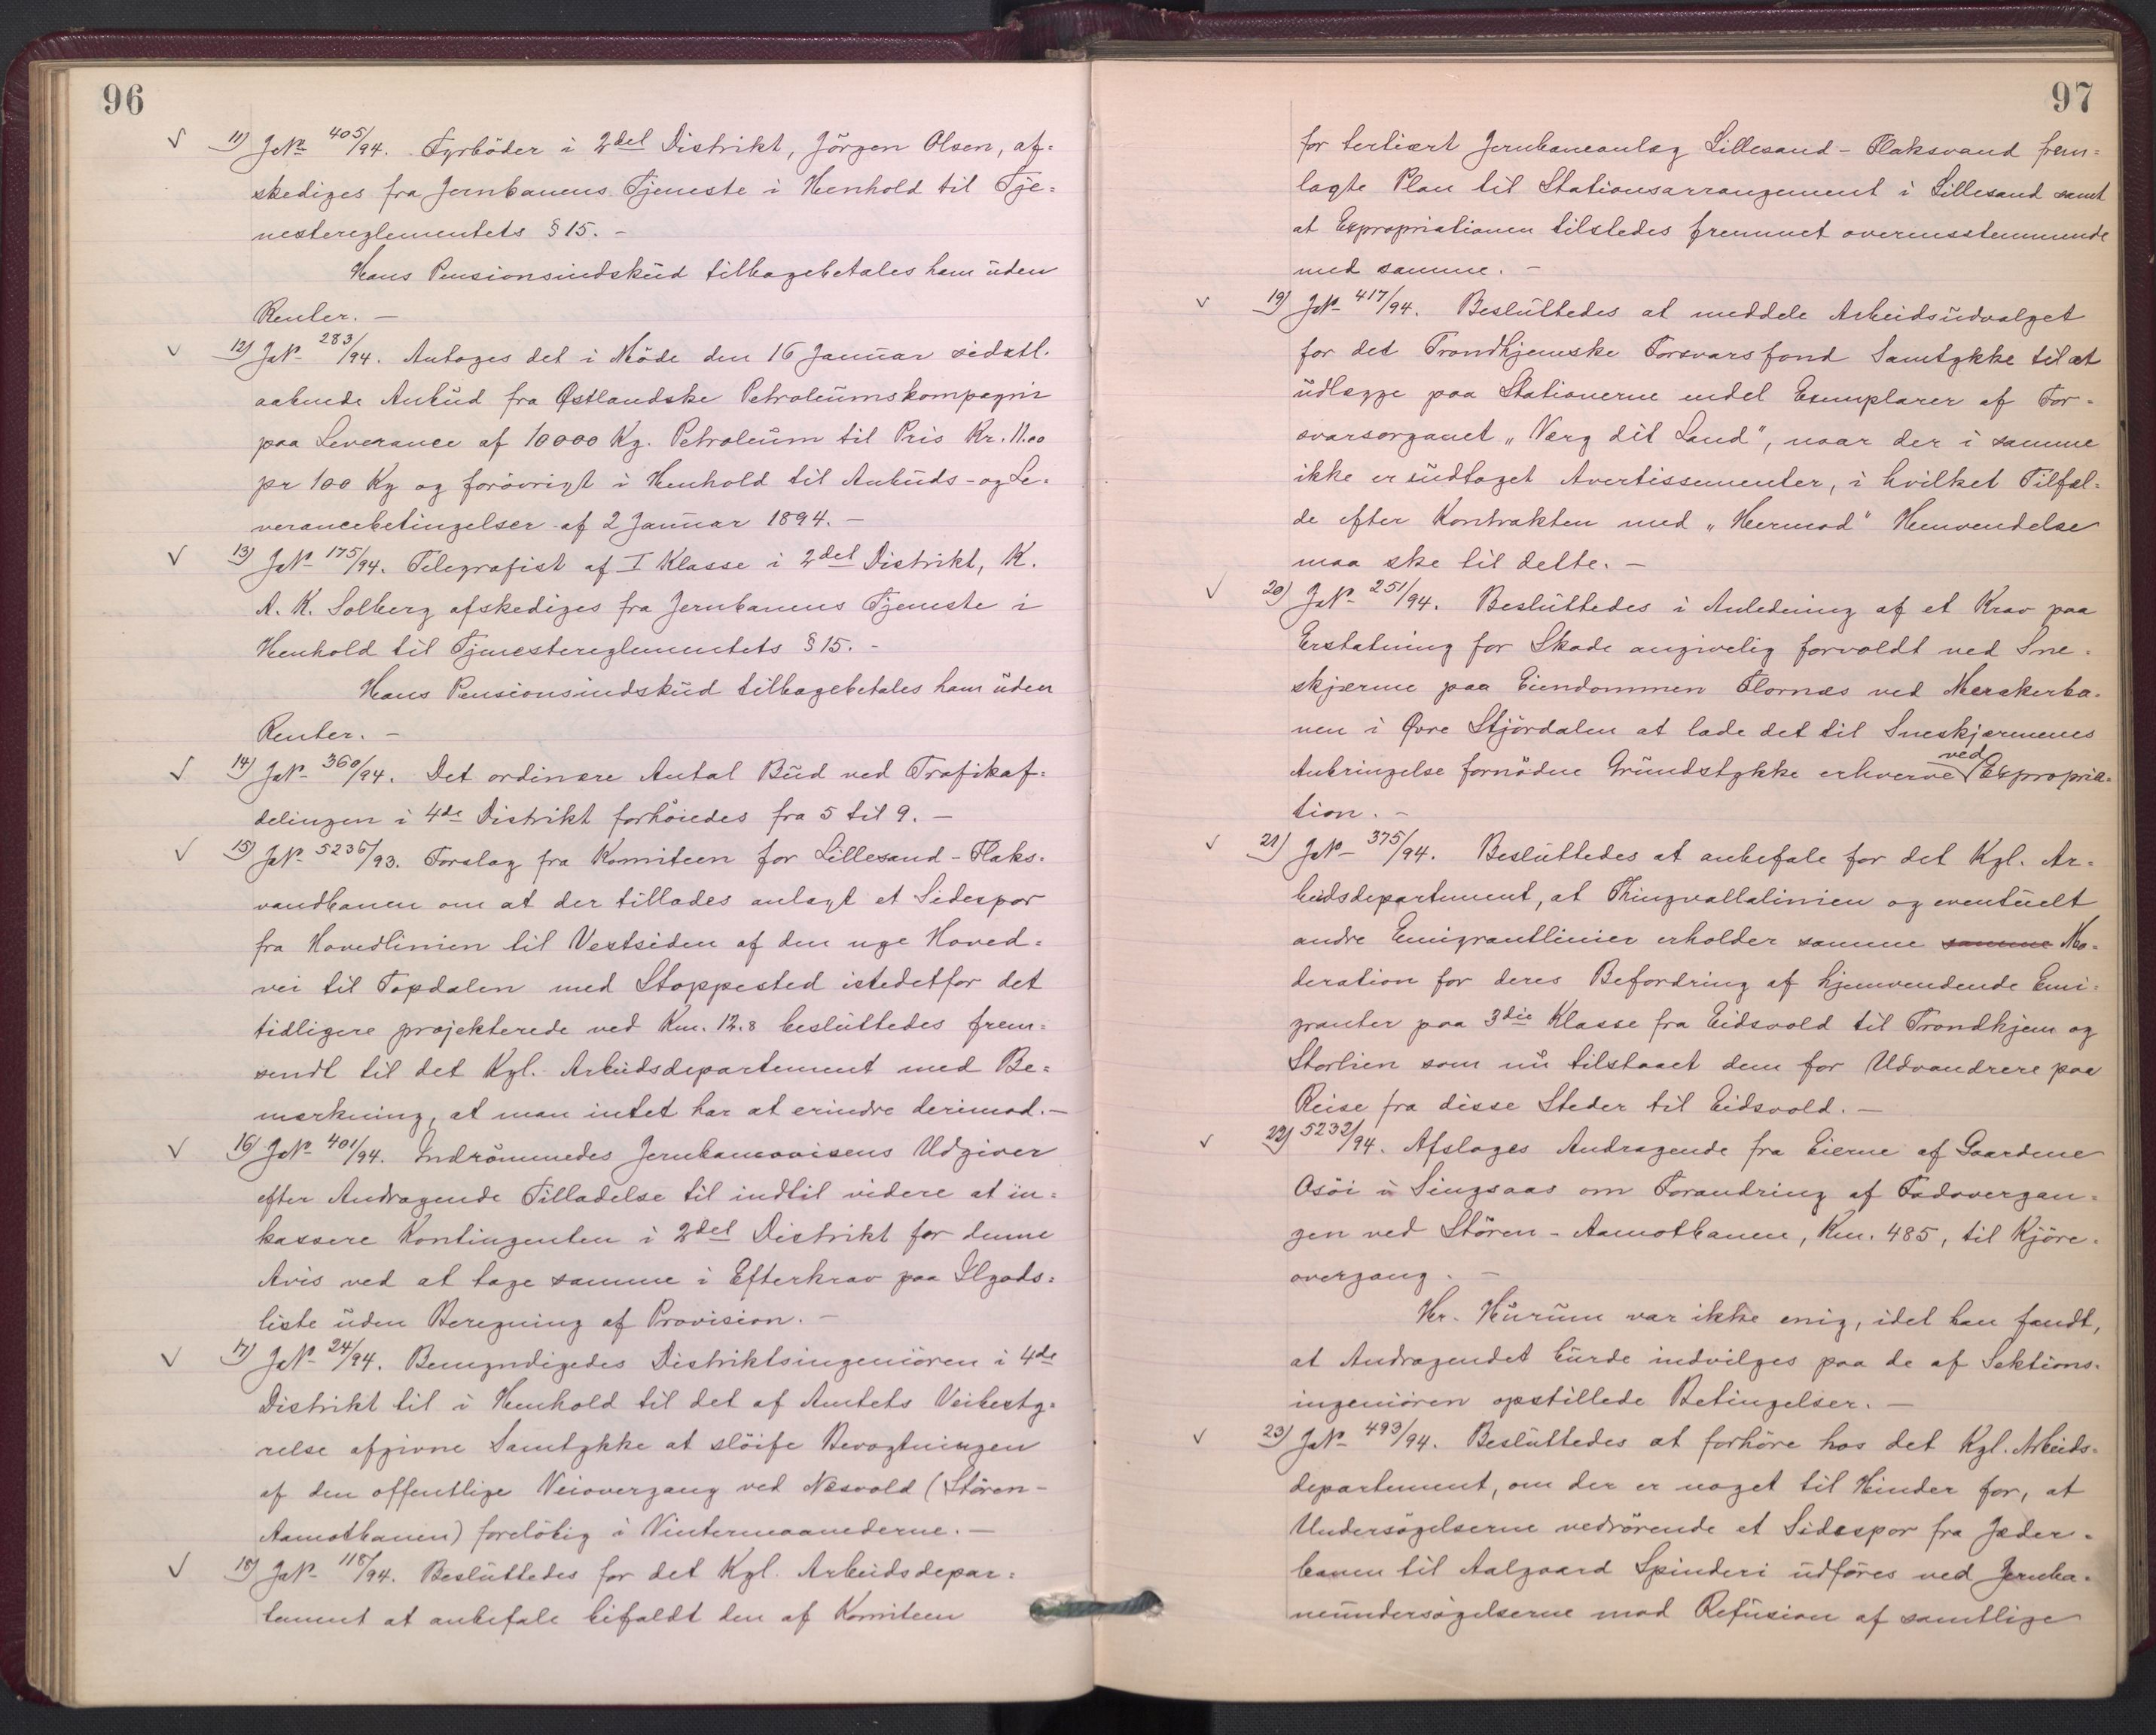 96
11) JNo 405/94. Fyrböder i 2det Distrikt, Jörgen Olsen, af=
skediges fra Jernbanens Tjeneste i Henhold til Tje=
nestereglementets § 15. –
Hans Pensionsindskud tilbagebetales ham uden
Renter. –
12) JNo 283/94. Antoges det i Möde den 16 Januar sidstl.
aabnede Anbud fra Østlandske Petroleumskompagni
paa Leverance af 10000 Kg. Petroleum til Pris Kr. 11.00
pr 100 Kg og forövrigt i Henhold til Anbuds- og Le=
verancebetingelser af 2 Januar 1894. –
13) JNo 175/94. Telegrafist af I Klasse i 2det Distrikt, K.
A. K. Solberg afskediges fra Jernbanens Tjeneste i
Henhold til Tjenestereglementets § 15. –
Hans Pensionsindskud tilbagebetales ham uden
Renter. –
14) JNo 360/94. Det ordinære Antal Bud ved Trafikaf=
delingen i 4de Distrikt forhöiedes fra 5 til 9. –
15) JNo 5236/93. Forslag fra Komiteen for Lillesand-Flaks=
vandbanen om at der tillades anlagt et Sidespor
fra Hovedlinien til Vestsiden af den nye Hoved=
vei til Topdalen med Stoppested istedetfor det
tidligere projekterede ved Km. 12.8 besluttedes frem=
sendt til det Kgl. Arbeidsdepartement med Be=
merkning, at man intet har at erindre derimod. –
16) JNo 401/94. Indrömmedes Jernbaneavisens Udgiver
efter Andragende Tilladelse til indtil videre at in=
kassere Kontingenten i 2det Distrikt for denne
Avis ved at tage samme i Efterkrav paa Ilgods=
liste uden Beregning af Provision. –
17) JNo 24/94. Bemyndigedes Distriktsingeniören i 4de
Distrikt til i Henhold til det af Amtets Veibesty=
relse afgivne Samtykke at slöife Bevogtningen
af den offentlige Veiovergang ved Næsvold (Stören-
Aamotbanen) forelöbig i Vintermaanederne. –
18) JNo 118/94. Besluttedes for det Kgl. Arbeidsdepar=
tement at anbefale bifaldt den af Komiteen
97
for tertiært Jernbaneanlæg Lillesand-Flaksvand frem=
lagte Plan til Stationsarrangement i Lillesand samt
at Expropriationen tilstedes fremmet overensstemmende
med samme. –
19) JNo 417/94. Besluttedes at meddele Arbeidsudvalget
for det Trondhjemske Forsvarsfond Samtykke til at
udlægge paa Stationerne endel Exemplarer af For=
svarsorganet „Værg dit Land", naar der i samme
ikke er indtaget Avertissementer, i hvilket Tilfæl=
de efter Kontrakten med „Hermod" Henvendelse
maa ske til dette. –
20) JNo 251/94. Besluttedes i Anledning af et Krav paa
Erstatning for Skade angivelig forvoldt ved Sne=
skjærme paa Eiendommen Flornæs ved Merakerba=
nen i Øvre Stjördalen at lade det til Sneskjærmenes
Anbringelse fornödne Grundstykke erhverve ved Expropria=
tion. –
21) JNo 375/94. Besluttedes at anbefale for det Kgl. Ar=
beidsdepartement, at Thingvallalinien og eventuelt
andre Emigrantlinier erholder samme samme Mo=
deration for deres Befordring af hjemvendende Emi=
granter paa 3die Klasse fra Eidsvold til Trondhjem og
Storlien som nu tilstaaet dem for Udvandrere paa
Reise fra disse Steder til Eidsvold. –
22) 5232/94. Afsloges Andragende fra Eierne af Gaardene
Osöi i Singsaas om Forandring af Fadovergan=
gen ved Stören-Aamotbanen, Km. 485, til Kjöre=
overgang. –
Hr. Hurum var ikke enig, idet han fandt,
at Andragendet burde indvilges paa de af Sektions=
ingeniören opstillede Betingelser. –
23) JNo 493/94. Besluttedes at forhöre hos det Kgl. Arbeids=
departement, om der er noget til Hinder for, at
Undersögelserne vedrörende et Sidespor fra Jæder=
banen til Aalgaard Spinderi udföres ved Jernba=
neundersögelserne mod Refusion af samtlige